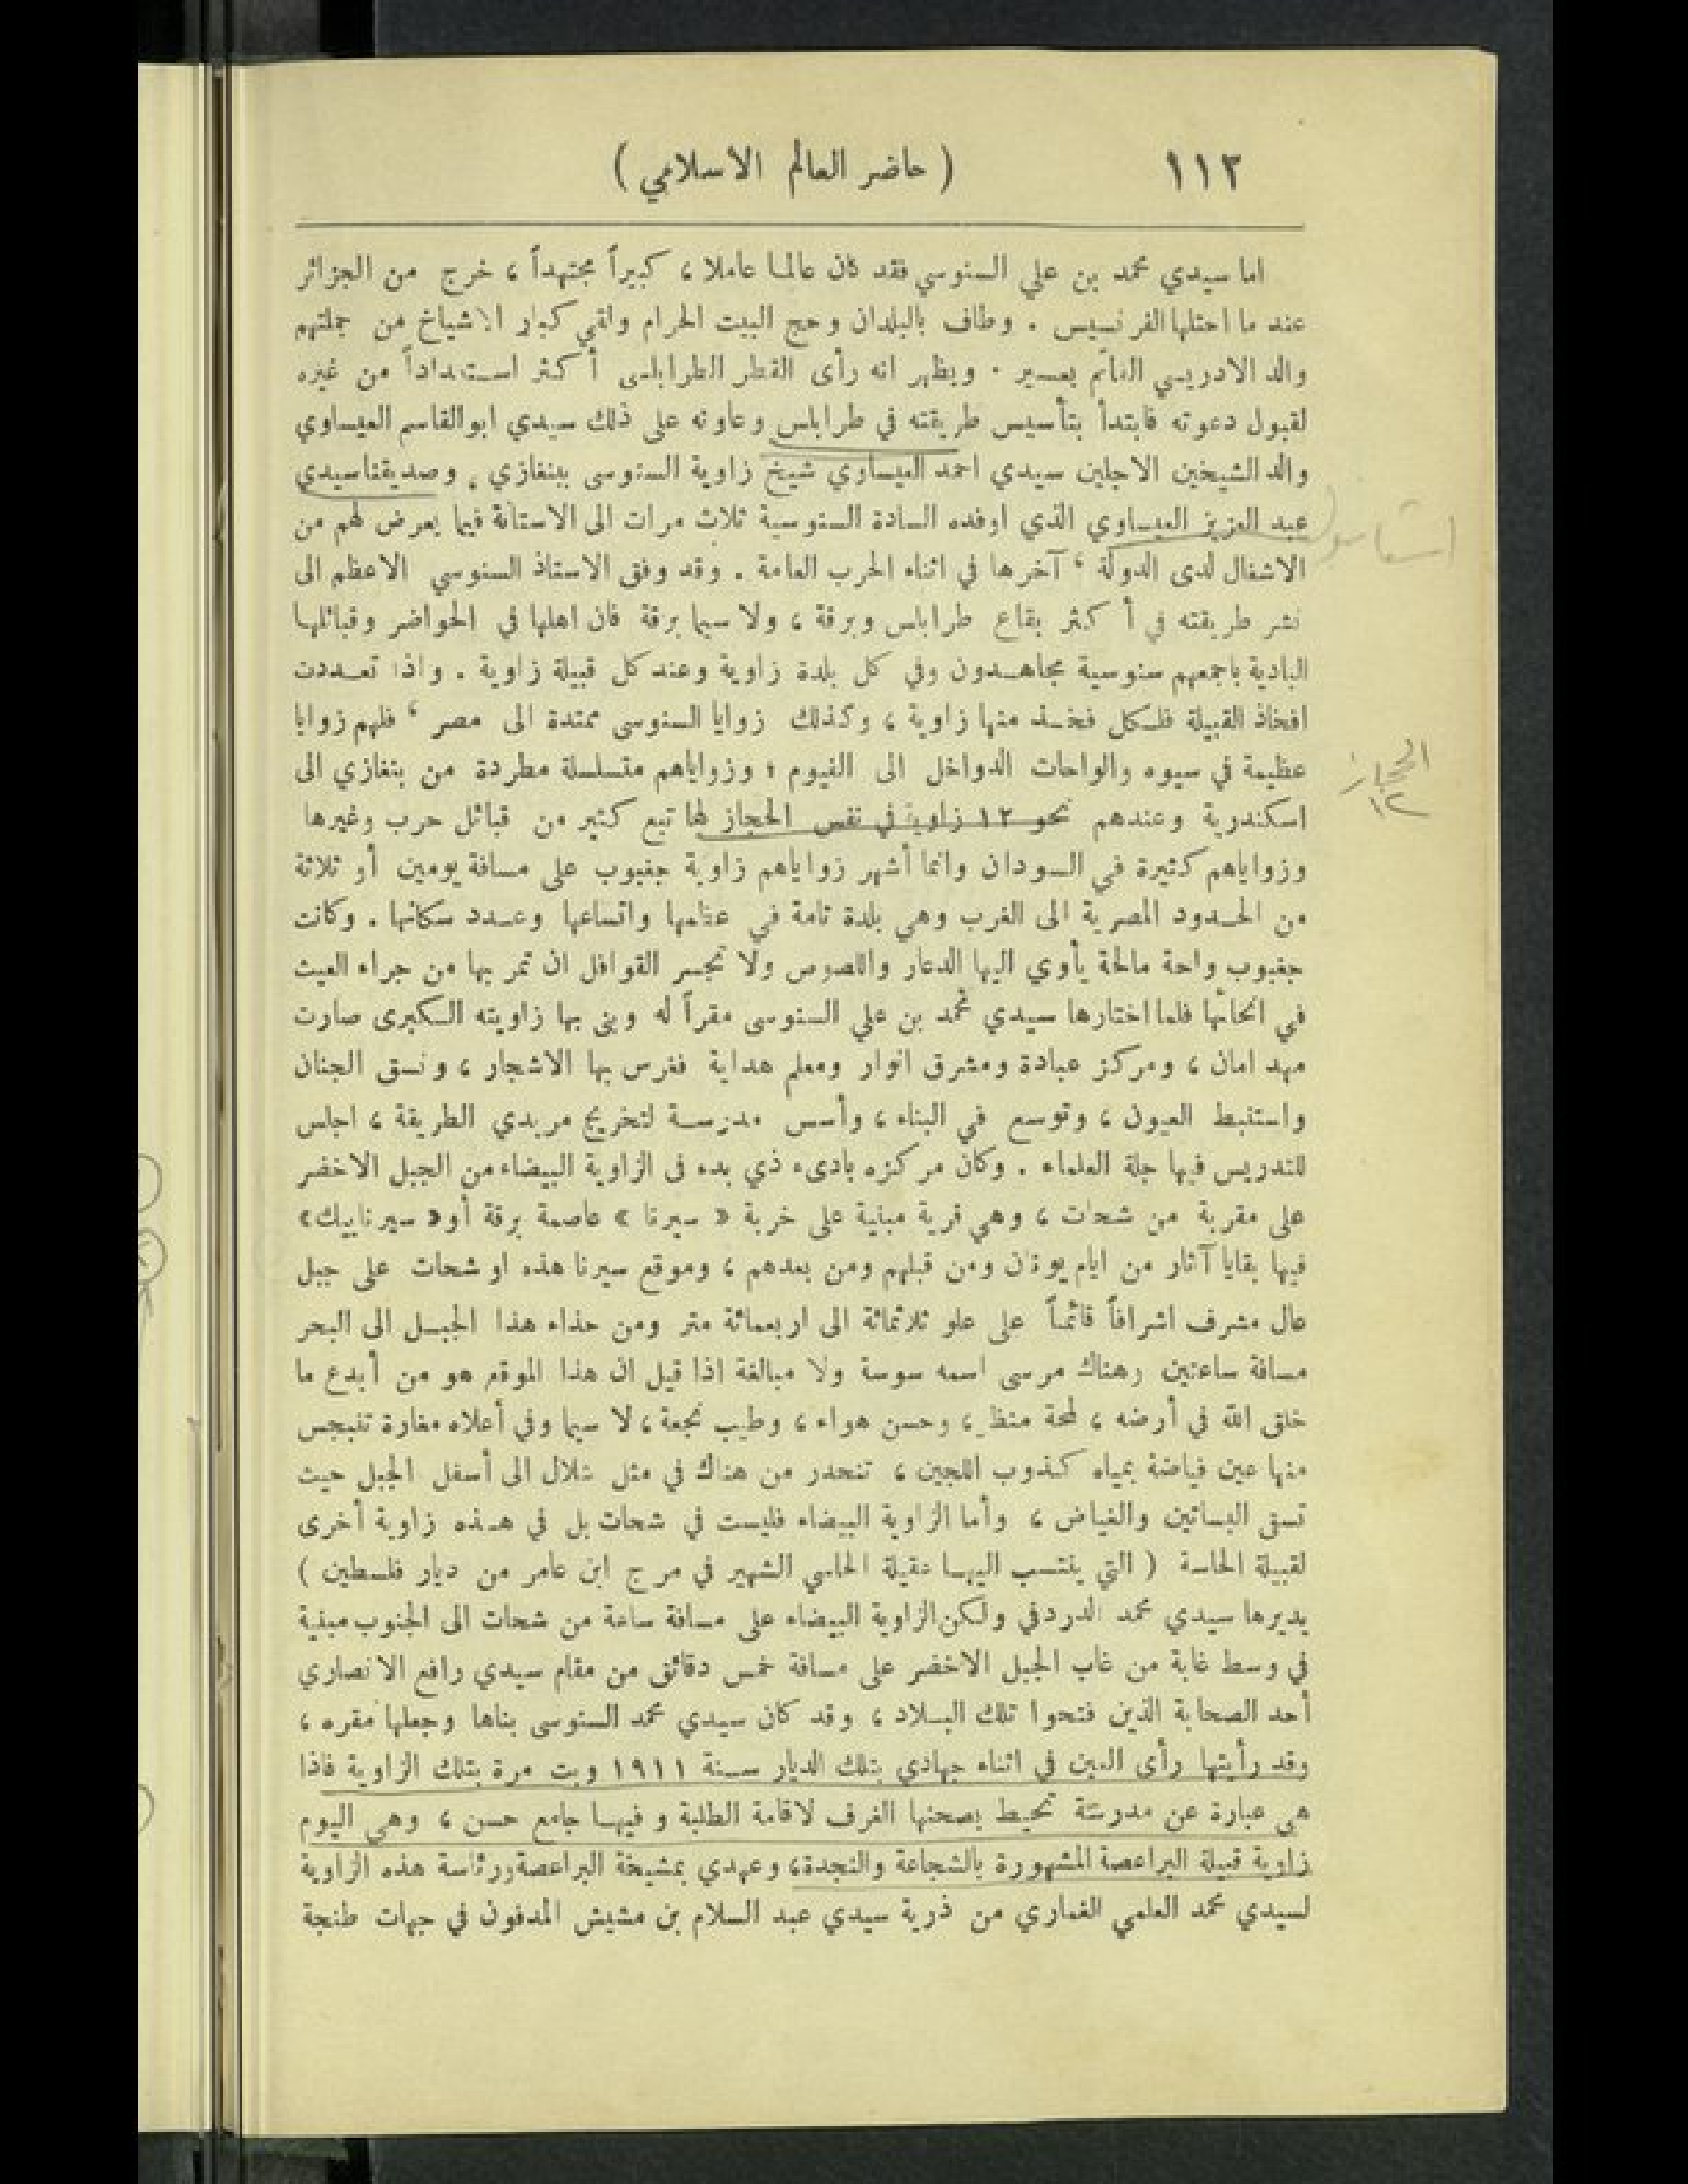 ١١٢
( حاضر العالم الأسلامي )
اما سيدي محمد بن علي السنوسي فقد كان عالما عاملا ، كبيراً مجتهداً ، خرج من الجزائر
عند ما احتلها الفرنسيس . وطاف بالبلدان وحج البيت الحرام ولقي كبار الاشياخ من جملتهم
والد الادريسي القائم بعسير . ويظهر انه رأى القطر الطرابلسي أكثر استعداداً من غيره
لقبول دعوته فابتدأ بتأسيس طريقته في طرابلس وعاونه على ذلك سيدي ابوالقاسم العيساوي
والد الشيخين الاجلين سيدي احمد العيساوي شيخ زاوية السنوسى ببنغازي . وصديقنا سيدي
عبد العزيز العيساوي الذي اوفده السادة السنوسية ثلاث مرات الى الاستانة فيما يعرض لهم من
الاشغال لدى الدولة ، آخرها في اثناء الحرب العامة . وقد وفق الاستاذ السنوسي الاعظم الى
نشر طريقته في أكثر بقاع طرابلس وبرقة ، ولا سيما برقة فان اهلها في الحواضر وقبائلها
البادية باجمعهم سنوسية مجاهدون وفي كل بلدة زاوية وعند كل قبيلة زاوية . واذا تعددت
افخاذ القبيلة فلكل فخذ منها زاوية ، وكذلك زوايا السنوسى ممتدة الى مصر ، فلهم زوايا
عظيمة في سيوه والواحات الدواخل الى الفيوم ؛ وزواياهم متسلسلة مطردة من بنغازي الى
اسكندرية وعندهم نحو ١٢ زاوية في نفس الحجاز لها تبع كثير من قبائل حرب وغيرها
وزواياهم كثيرة في السودان وانما أشهر زواياهم زاوية جغبوب على مسافة يومين أو ثلاثة
من الحدود المصرية الى الغرب وهي بلدة تامة في عظمها واتساعها وعدد سكانها . وكانت
جغبوب واحة مالحة يأوي اليها الدعار واللصوص ولا تجسر القوافل ان تمر بها من جراء العيث
في انحائها فلما اختارها سيدي محمد بن علي السنوسى مقراً له وبنى بها زاويته الكبرى صارت
مهد امان ، ومركز عبادة ومشرق انوار ومعلم هداية فغرس بها الاشجار ، ونسق الجنان
واستنبط العيون ، وتوسع في البناء ، وأسس مدرسة لتخريج مريدي الطريقة ، اجلس
للتدريس فيها جلة العلماء . وكان مركزه بادىء ذي بدء فى الزاوية البيضاء من الجبل الاخضر
على مقربة من شحات ، وهي قرية مبنية على خربة « سيرنا » عاصمة برقة أو « سيرناييك»
فيها بقايا آثار من ايام يونان ومن قبلهم ومن بعدهم ، وموقع سيرنا هذه او شحات على جبل
عال مشرف اشرافاً قائماً على علو ثلاثمائة الى اربعمائة متر ومن حذاء هذا الجبل الى البحر
مسافة ساعتين وهناك مرسى اسمه سوسة ولا مبالغة اذا قيل ان هذا الموقع هو من أبدع ما
خلق الله في أرضه ، لمحة منظر ، وحسن هواء ، وطيب نجعة ، لا سيما وفي أعلاه مغارة تنبجس
منها عين فياضة بمياه كذوب اللجين ، تنحدر من هناك في مثل شلال الى أسفل الجبل حيث
تسقى البساتين والغياض ، وأما الزاوية البيضاء فليست في شحات بل في هذه زاوية أخرى
لقبيلة الحاسة ( التي ينتسب اليها عقيلة الحاسي الشهير في مرج ابن عامر من ديار فلسطين )
يديرها سيدي محمد الدردفي ولكن الزاوية البيضاء على مسافة ساعة من شحات الى الجنوب مبنية
في وسط غابة من غاب الجبل الاخضر على مسافة خمس دقائق من مقام سيدي رافع الانصاري
أحد الصحابة الذين فتحوا تلك البلاد ، وقد كان سيدي محمد السنوسى بناها وجعلها مقره ،
وقد رأيتها رأى العين في اثناء جهادي بتلك الديار سنة ١٩١١ وبت مرة بتلك الزاوية فاذا
هي عبارة عن مدرسة تحيط بصحنها الغرف لاقامة الطلبة و فيها جامع حسن ، وهي اليوم
زاوية قبيلة البراعصة المشهورة بالشجاعة والنجدة ، وعهدي بمشيخة البراعصة ورئاسة هذه الزاوية
لسيدي محمد العلمي الغماري من ذرية سيدي عبد السلام بن مشيش المدفون في جهات طنجة
الحجاز
١٢